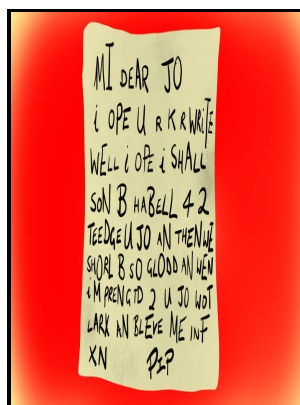 MI DEAR JO
i OPE U R K R WRITE
WELL i OPE i SHALL
SON B HABELL 4 2
TEEDGE U JO AN THEN WE
SHORL B SO GLODD AN WEN
iM PRENGTD 2 U JO WOT
LARX AN BLEVE ME INF
XN PIP